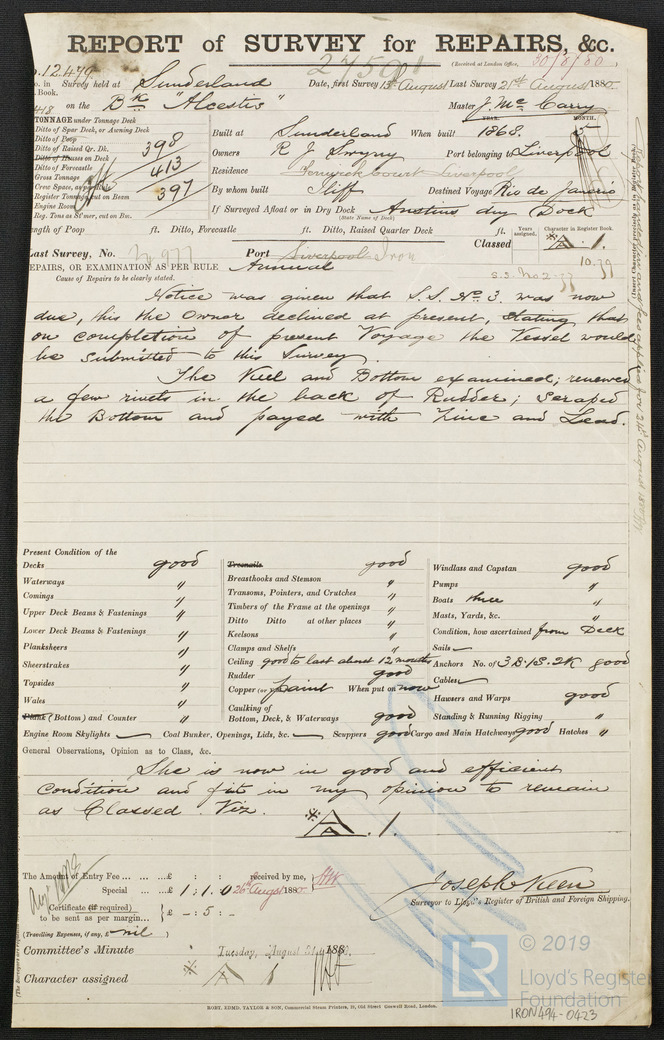 REPORT of SURVEY for REPAIRS, &c.
(Received at London Office, 30/8/80
No. 12.479
No. in Survey held at Sunderland Date, first Survey 13th August Last Survey 21st August 1880.
Book.
448 on the Bk "Alcestis" Master J. Mc Carry
TONNAGE under Tonnage Deck
Ditto of Spar Deck, or Awning Deck
Ditto of Poop 398
Ditto of Raised Qr. Dk.
Ditto of Houses on Deck
Ditto of Forecastle 413
Gross Tonnage
Crew Space, as per Rule
Register Tonnage, cut on Beam 397
Engine Room
Reg. Tons as St'mer, cut on Bm.
YEAR. MONTH.
Built at Sunderland When built 1868. 5
Owners R J Swyny Port belonging to Liverpool
Residence Fenwick Court Liverpool
By whom built Iliff Destined Voyage Rio de Janerio
If Surveyed Afloat or in Dry Dock Austins dry Dock
(State Name of Dock)
Length of Poop ft. Ditto, Forecastle ft. Ditto, Raised Quarter Deck ft.
Years assigned. Character in Register Book.
Classed A. 1.
Last Survey, No. Port Liverpool Iron 10.79
S.S. No 2-77
REPAIRS, OR EXAMINATION AS PER RULE Annual
Cause of Repairs to be clearly stated.
Notice was given that S.S. No. 3. was now
due, this the Owner declined at present, stating that
on completion of present Voyage the Vessel would
be submitted to this Survey.
The Keel and Bottom examined; renewed
a few rivets in the back of Rudder; Scraped
the Bottom and payed with Zinc and Lead.
Present Condition of the
Decks good
Waterways "
Comings "
Upper Deck Beams & Fastenings "
Lower Deck Beams & Fastenings "
Planksheers "
Sheerstrakes "
Topsides "
Wales "
Plank (Bottom) and Counter "
Treenails good
Breasthooks and Stemson "
Transoms, Pointers, and Crutches "
Timbers of the Frame at the openings "
Ditto Ditto at other places "
Keelsons "
Clamps and Shelfs "
Ceiling good to last about 12 months
Rudder good
Copper (or Paint When put on now
Caulking of
Bottom, Deck, & Waterways good
Windlass and Capstan good
Pumps "
Boats three "
Masts, Yards, &c. "
Condition, how ascertained from Deck
Sails
Anchors No. of 3 B. 1 S. 2 K good
Cables
Hawsers and Warps good
Standing & Running Rigging "
Engine Room Skylights Coal Bunker, Openings, Lids, &c. Scuppers good Cargo and Main Hatchways good Hatches "
General Observations, Opinion as to Class, &c.
She is now in good and efficient
Condition and fit in my opinion to remain
as Classed. Viz.
A. 1.
The Amount of Entry Fee £ : : received by me,
Special £ 1 : 1. 0 26th Augst 1880
Certificate (if required)
to be sent as per margin £ - : 5 : -
(Travelling Expenses, if any, £ nil )
Joseph Keen
Surveyor to Lloyd's Register of British and Foreign Shipping.
Committee's Minute Tuesday, August 31st, 1880.
Character assigned A 1
ROBT. EDMD. TAYLOR & SON, Commercial Steam Printers, 19, Old Street Goswell Road, London.
© 2019
LR
Lloyd's Register
Foundation
IRON494-0423